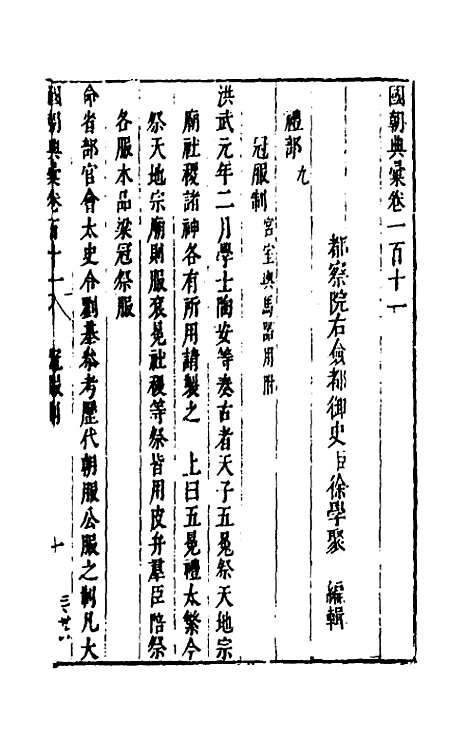 國朝典彙卷一百十一
都察院右僉都御史臣徐學聚　編輯
禮部九
冠服制 宮室輿馬器用附
洪武元年二月學士陶安等奏古者天子五冕祭天地宗
廟社稷諸神各有所用請製之　上曰五冕禮太繁今
祭天地宗廟則服衮冕社稷等祭皆用皮弁羣臣陪祭
各服本品梁冠祭服
命省部官會太史令劉基參考歷代朝服公服之制凡大
國朝典彙卷百十一　冠服制　十